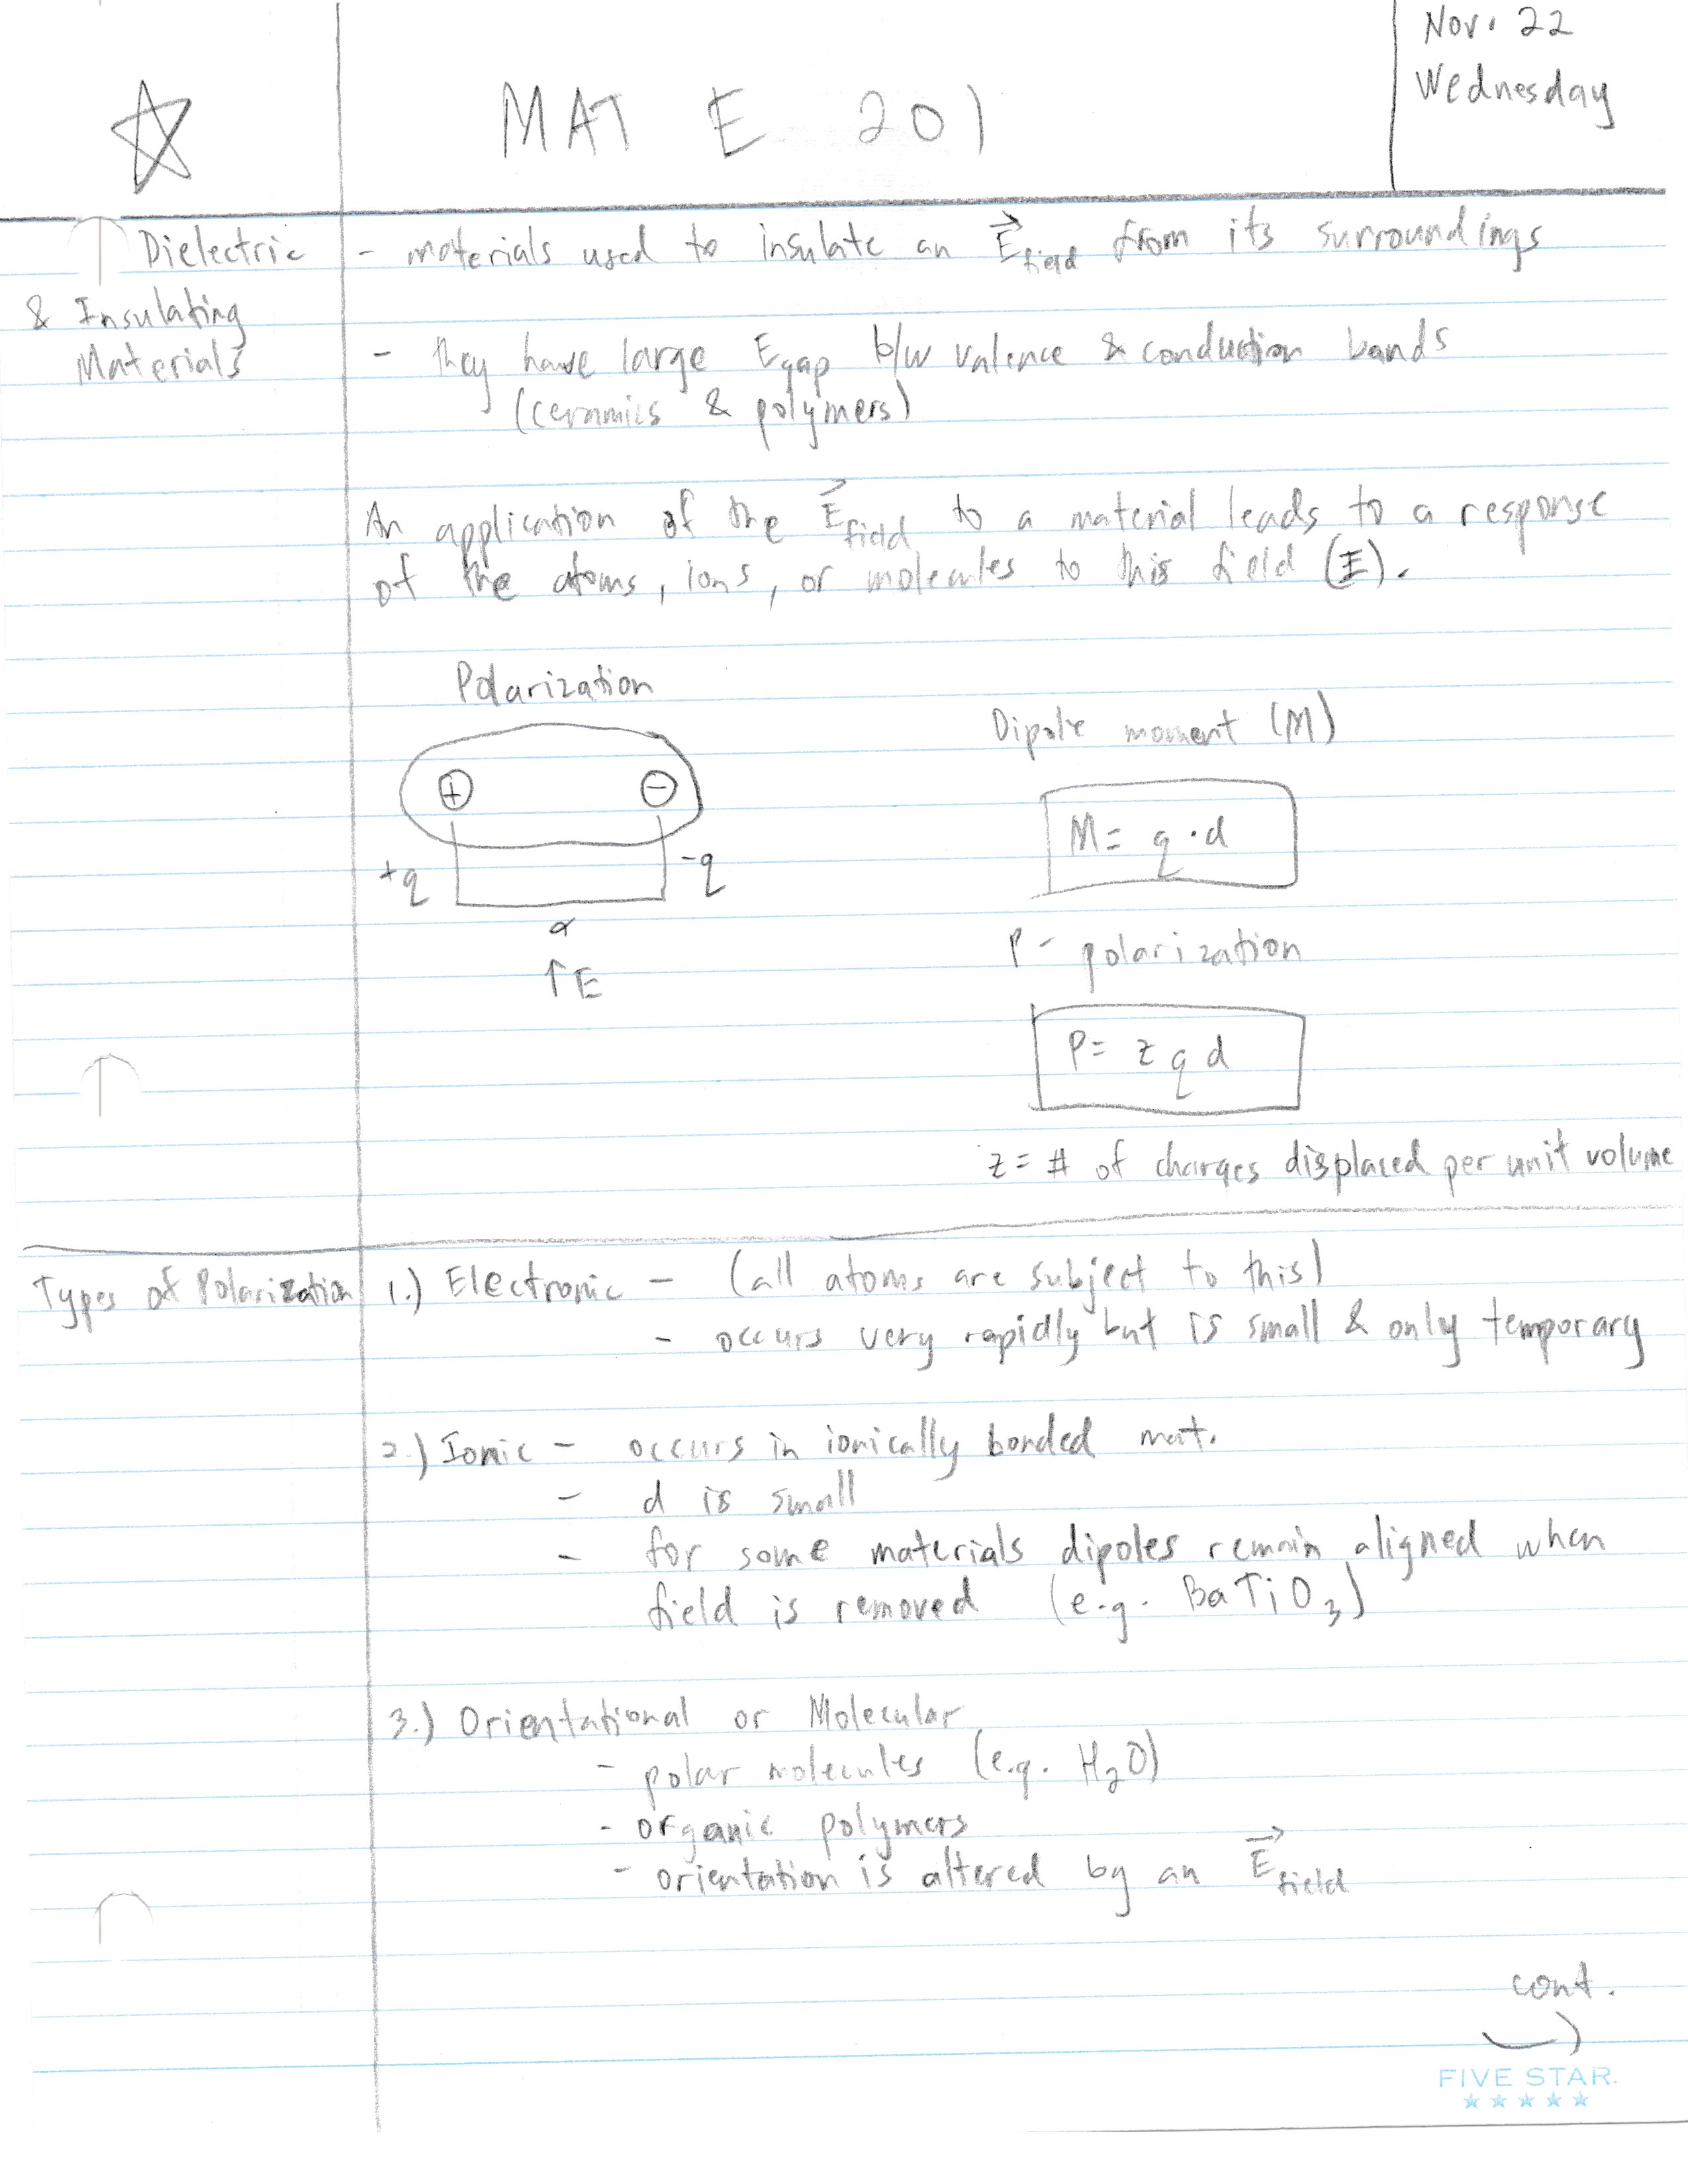 Nov. 22
Wednesday
MAT E 201
Dielectric
& Insulating
Materials
- materials used to insulate an E⃗field from its surroundings
- they have large Egap b/w valence & conduction bands
(ceramics & polymers)
An application of the E⃗field to a material leads to a response
of the atoms, ions, or molecules to this field (E).
Polarization
+ −
+q -q
↑E
Dipole moment (M)
M = q · d
P - polarization
P = z q d
z = # of charges displaced per unit volume
Types of Polarization
1.) Electronic - (all atoms are subject to this)
- occurs very rapidly but is small & only temporary
2.) Ionic - occurs in ionically bonded mat.
- d is small
- for some materials dipoles remain aligned when
field is removed (e.g. BaTiO₃)
3.) Orientational or Molecular
- polar molecules (e.g. H₂O)
- organic polymers
- orientation is altered by an E⃗field
cont.
FIVE STAR.